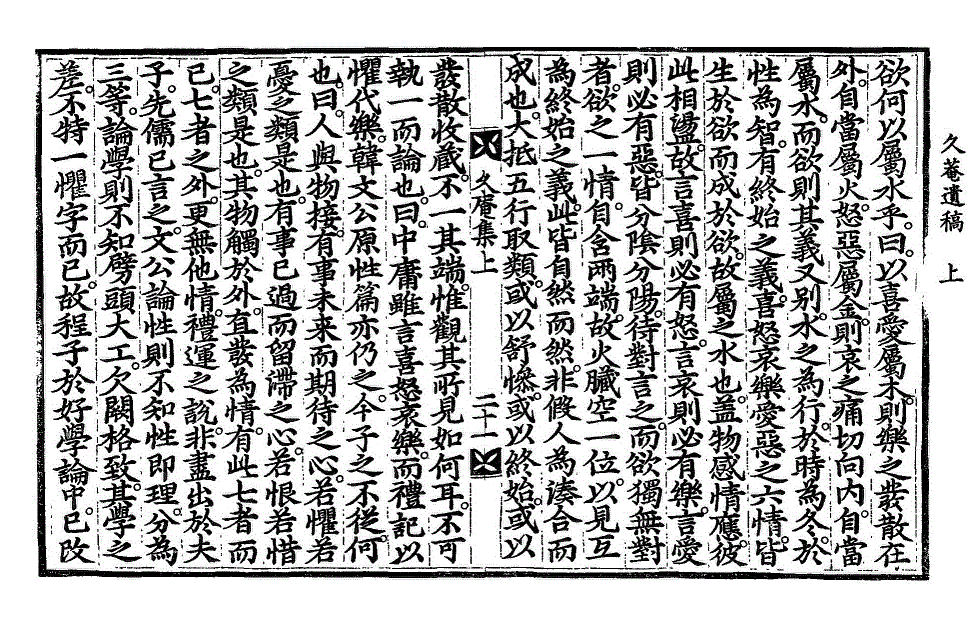 久菴遺稿 上
欲何以屬水乎。曰。以喜愛屬木。則樂之發散在
外。自當屬火。怒惡屬金。則哀之痛切向內。自當
屬水。而欲則其義又別。水之爲行。於時爲冬。於
性爲智。有終始之義。喜怒哀樂愛惡之六情。皆
生於欲而成於欲。故屬之水也。蓋物感情應。彼
此相盪。故言喜則必有怒。言哀則必有樂。言愛
則必有惡。皆分陰分陽。待對言之。而欲獨無對
者。欲之一情。自含兩端。故火臟空一位。以見互
爲終始之義。此皆自然而然。非假人爲湊合而
成也。大抵五行取類。或以舒慘。或以終始。或以
久庵集上 二十一
發散收藏。不一其端。惟觀其所見如何耳。不可
執一而論也。曰。中庸雖言喜怒哀樂。而禮記以
懼代樂。韓文公原性篇亦仍之。今子之不從何
也。曰。人與物接。有事未來而期待之心。若懼若
憂之類是也。有事已過而留滯之心。若恨若惜
之類是也。其物觸於外。直發爲情。有此七者而
已。七者之外。更無他情。禮運之說。非盡出於夫
子。先儒已言之。文公論性則不知性卽理。分爲
三等。論學則不知劈頭大工。欠闕格致。其學之
差。不特一懼字而已。故程子於好學論中。已改